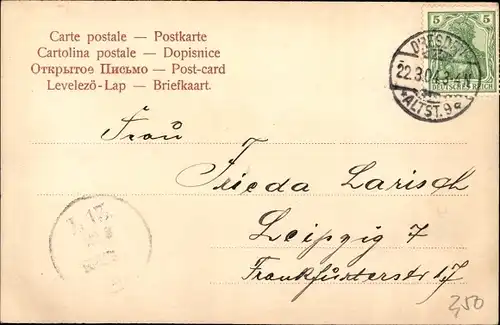 Carte postale — Postkarte
Cartolina postale — Dopisnice
Открытое Письмо — Post-card
Levelező-Lap — Briefkaart.
5 5
DEUTSCHES REICH
DRESDEN
22.3.04.3-4N
ALTST. 9
Frau
Frieda Larisch
Leipzig 7
Frankfurterstr. 17
2,50